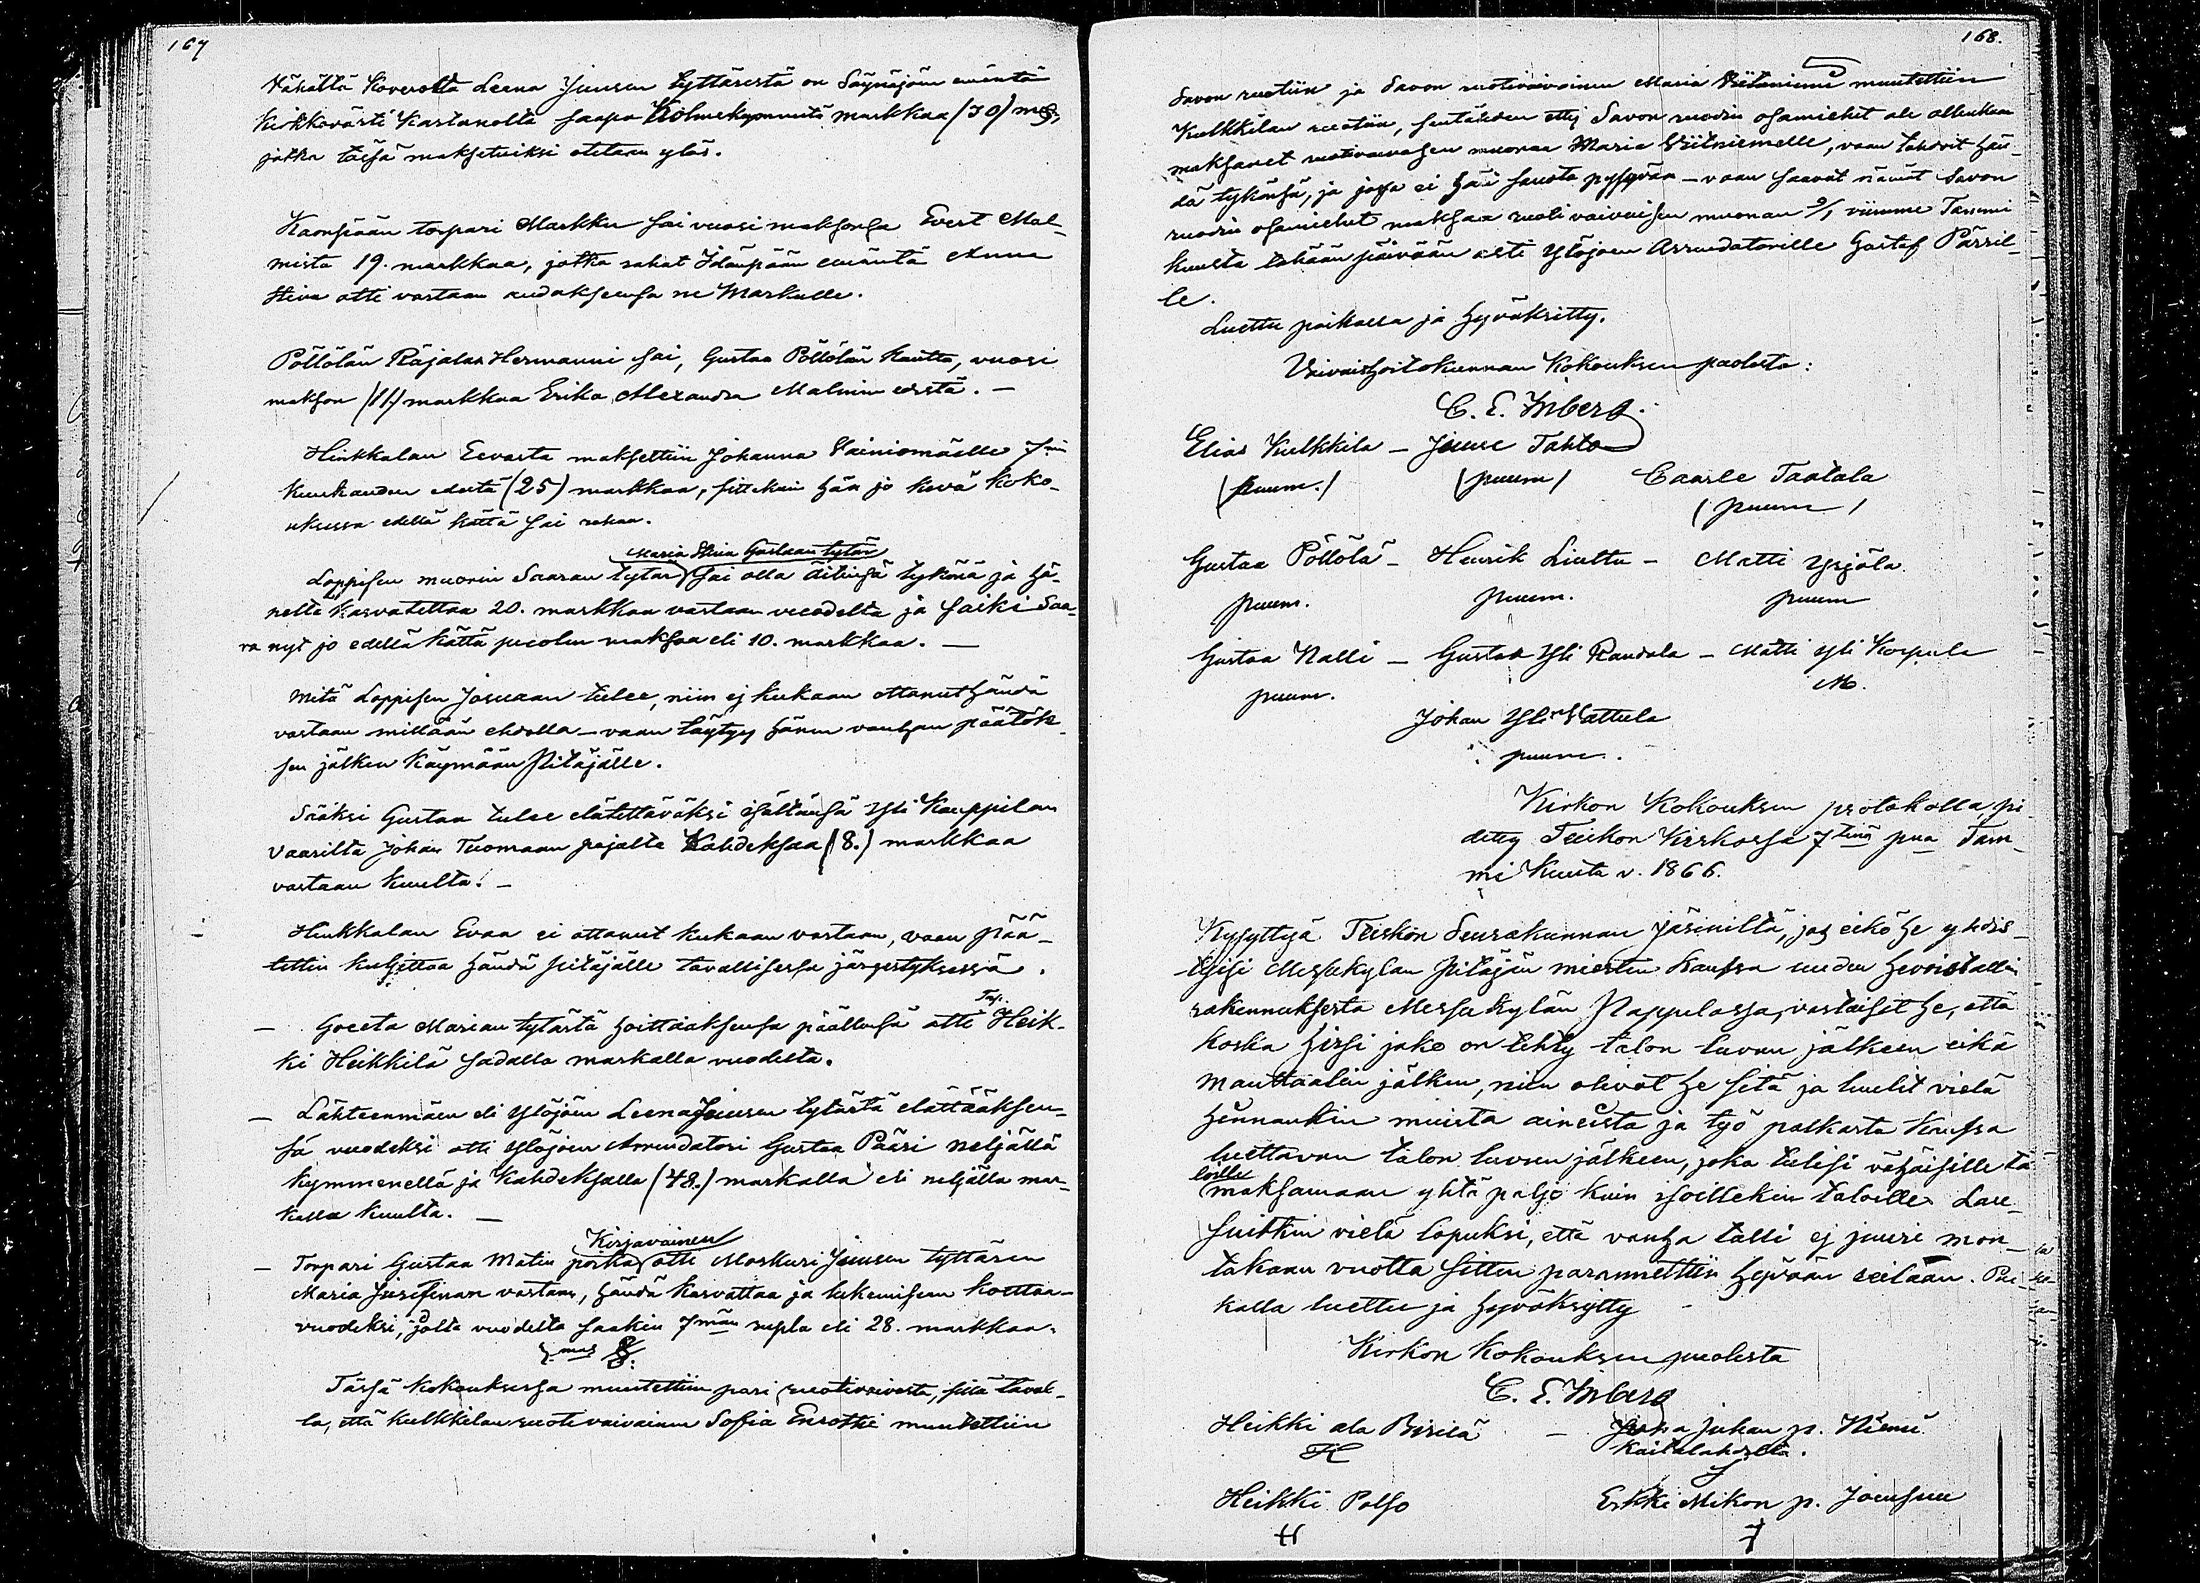 167
Vähältä Koverolta Leena Juusen tyttärestä on Säynäjoen emäntä
Kirkkovärti Kastarilta saapa Kolmekymmentä markkaa (30) mg,
jotka tässä maksetuiksi otetaan ylös.
Kaanpään torpari Markku sai vuosi maksonsa Evert Mal-
mista 19. markkaa, jotka rahat Idänpään emäntä Anna
Stiva otti vastaan andaksensa ne Markulle.
Pöllölän Räjalan Hermanni sai, Gustaa Pöllölän kautta, vuosi
makson (11) markkaa Erika Alexandra Malmin edestä. —
Hinkkalan Eevasta maksettiin Johanna Vainiomäelle 7män
kuukauden edestä (25) markkaa, sittekuin hän jo kevä koko-
uksessa edellä kättä sai rahaa.
Maria Stiina Gustaan tytär
Loppisen muorin Saaran tytar sai olla äitinsä tykönä ja hä-
neltä kasvatettaa 20. markkaa vastaan vuodelta ja saiki Saa-
ra nyt jo edellä kättä puolen maksoa eli 10. markkaa. —
Mitä Loppisen Josuaan tulee, niin ej kukaan ottanut händä
vastaan millään ehdolla — vaan täytyy hänen vanhan päätök-
sen jälken käymään Pitäjälle.
Sääksi Gustaa tulee elätettäväksi isältänsä Yli Kauppilan
vaarilta Johan Tuomaan pojalta Kahdeksaa (8.) markkaa
vastaan kuulta. —
Hinkkalan Evaa ei ottanut kukaan vastaan, vaan pää-
tettiin kuljettaa händä pitäjälle tavallisessa järjestyksessä.
Tap.
— Greeta Marian tytärtä hoittaaksensa päällensä otti Heik-
ki Heikkilä sadalla markalla vuodelta.
— Lähteenmäen eli Ylöjöen Leena Juusen tytärtä elättääksen-
sä vuodeksi otti Ylöjoen Arrendatori Gustaa Pääri neljällä
kymmenellä ja Kahdeksalla (48.) markalla eli neljällä mar-
kalla kuulta. —
Kirjavainen
— Torpari Gustaa Matin poika otti Moskuri Juusen tyttären
Maria Josefinan vastaan, händä kasvattaa ja lukemiseen koettaa
vuodeksi, jolta vuodelta saakin 7män rupla eli 28. markkaa.
Tässä kokouksessa muutettiin pari ruotivaivasta, sillä taval-
la, että Kulkkilan ruoti vaivainen Sofia Enrothi muutettiin
168.
Savon ruotiin ja Savon ruotivaivainen Maria Viitaniemi muutettiin
Kulkkilan ruotiin, sentähden ettej Savon ruodin osamiehet ole ollenkaan
maksaneet ruotivaivasen muonaa Maria Viitniemelle, vaan tahdoit hän-
dä tykönsä, ja jossa ei hän saanta pysyvän — vaan saavat nämät Savon
ruodin osamiehet maksaa ruoti vaivaisen muonan 9/1 viimme Tammi
kuusta tähään päivään asti Ylöjoen Arrendatorille Gustaf Pärril-
le.
Luettu paikalla ja hyväksitty.
Vaivaishoitokunnan Kokouksen puolesta:
C. E. Inberg.
Elias Kulkkila — Juure Tahto
(puum.) (puum) Caarle Taatala
(puum)
Gustaa Pöllölä — Henrik Liuttu — Matti Yrjölä
puum. puum. puum
Gustaa Nalli — Gustaa Yli Raudala — Matti Yli Korpula
puum. M.
Johan Yli Vattula
puum.
Kirkon Kokouksen protokolla, pi
detty Teiskon Kirkossa 7tenä pnä Tam-
mi Kuuta v. 1866.
Kysyttyä Teiskon Seurakunnan jäseniltä, jos eikö he yhdis-
tyisi Messukylän Pitäjän miesten kanssa uuden hevoistallin
rakennuksesta Messukylän Pappilassa, vastaisit he, että
koska hirsi jako on tehty talon luvun jälkeen eikä
manttaalin jälken, niin olivat he sitä ja luulit vielä
hinnankin muista aineista ja työ palkasta kanssa
luettavan talon luvun jälkeen, joka tulisi vähäisille ta
loille
maksamaan yhtä paljo kuin isoillekin taloille. Lau-
suittiin vielä lopuksi, että vanha talli ej juuri mon-
takaan vuotta sitten parannettiin hyvään seilaan. Pai-
kalla luettu ja hyväksytty
Kirkon Kokouksen puolesta
C. E. Inberg
Heikki ala Pirilä — Juha Juhan p. Niemi
H Kaitalahdelta.
Heikki Polso Erkki Mikon p. Jouhsuu
H